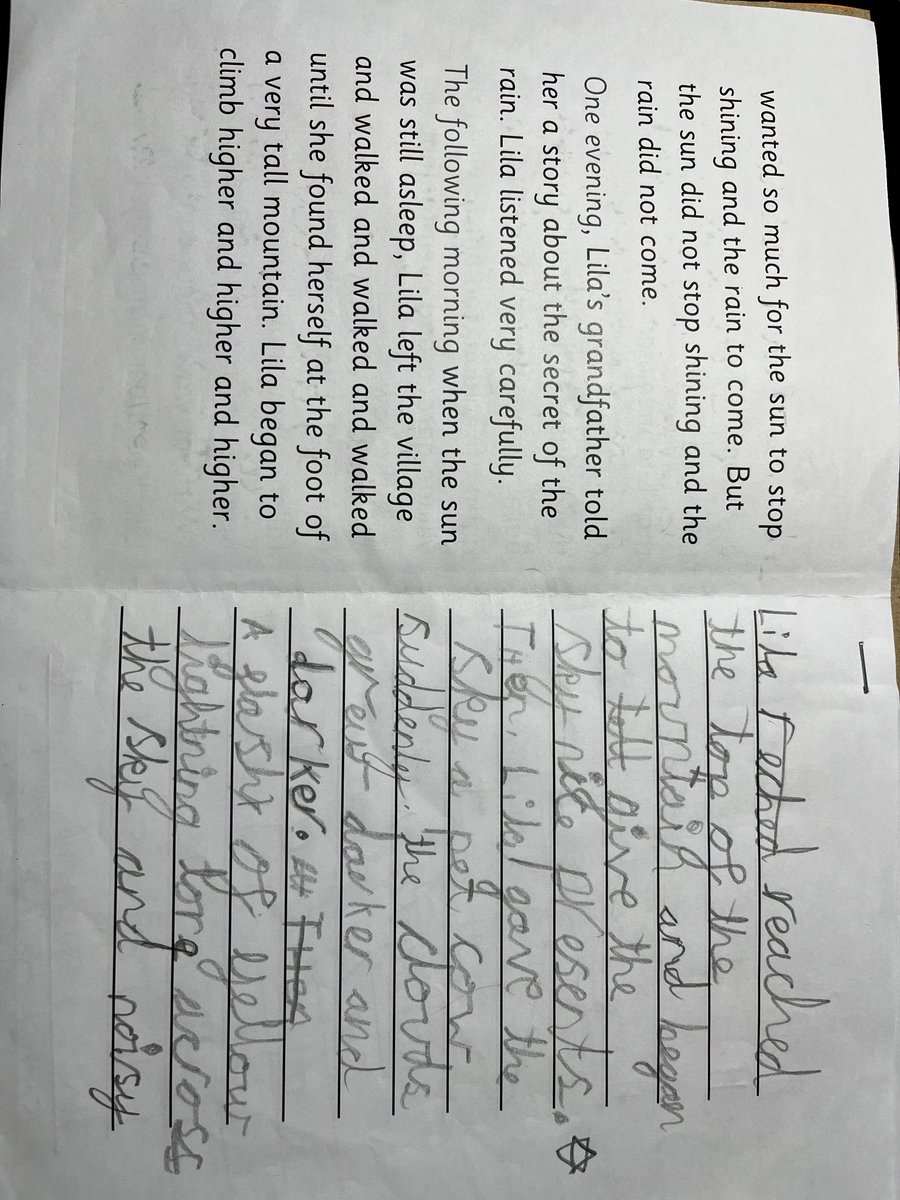 wanted so much for the sun to stop
shining and the rain to come. But
the sun did not stop shining and the
rain did not come.
One evening, Lila's grandfather told
her a story about the secret of the
rain. Lila listened very carefully.
The following morning when the sun
was still asleep, Lila left the village
and walked and walked and walked
until she found herself at the foot of
a very tall mountain. Lila began to
climb higher and higher and higher.
Lila reached
the top of the
mountain and began
to give the
sky presents.
Then, Lila gave the
sky a pet cow
suddenly the clouds
grew darker and
darker.
A flash of yellow
lightning across
the sky and noisy